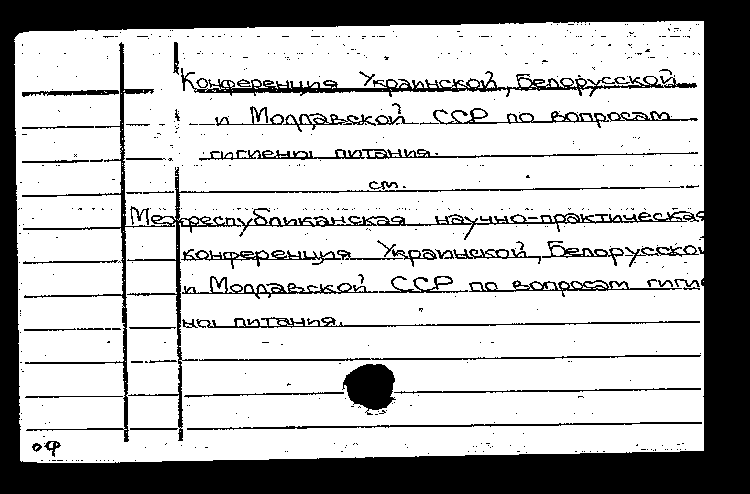 Конференция Украинской, Белорусской
и Молдавской ССР по вопросам
гигиены питания.
см.
Межреспубликанская научно-практическая
конференция Украинской, Белорусской
и Молдавской ССР по вопросам гигие
ны питания.
оф